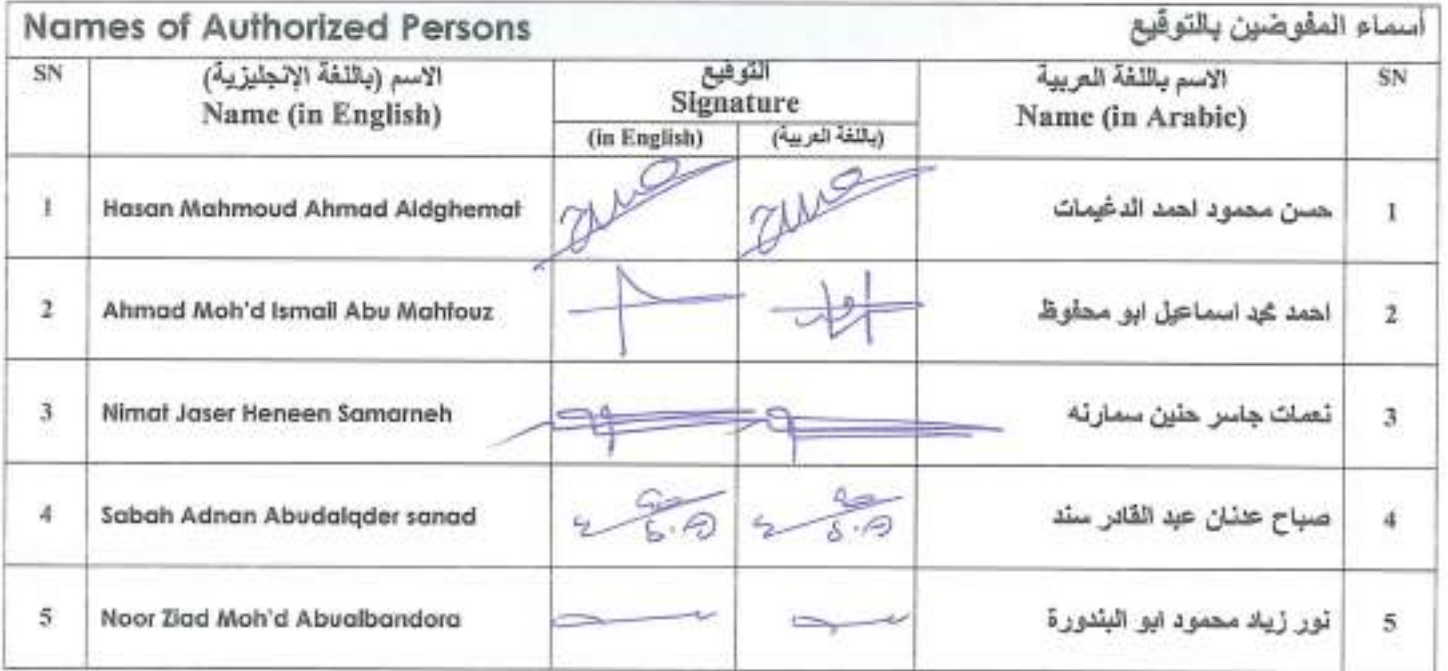 Names of Authorized Persons أسماء المفوضين بالتوقيع
SN الاسم (باللغة الإنجليزية) التوقيع الاسم باللغة العربية SN
Name (in English) Signature Name (in Arabic)
(in English) (باللغة العربية)
1 Hasan Mahmoud Ahmad Aldghemat حسن محمود احمد الدغيمات 1
2 Ahmad Moh'd Ismail Abu Mahfouz احمد محمد اسماعيل ابو محفوظ 2
3 Nimat Jaser Heneen Samarneh نعمات جاسر حنين سمارنه 3
4 Sabah Adnan Abudalqder sanad صباح عدنان عبد القادر سند 4
5 Noor Ziad Moh'd Abualbandora نور زياد محمود ابو البندورة 5